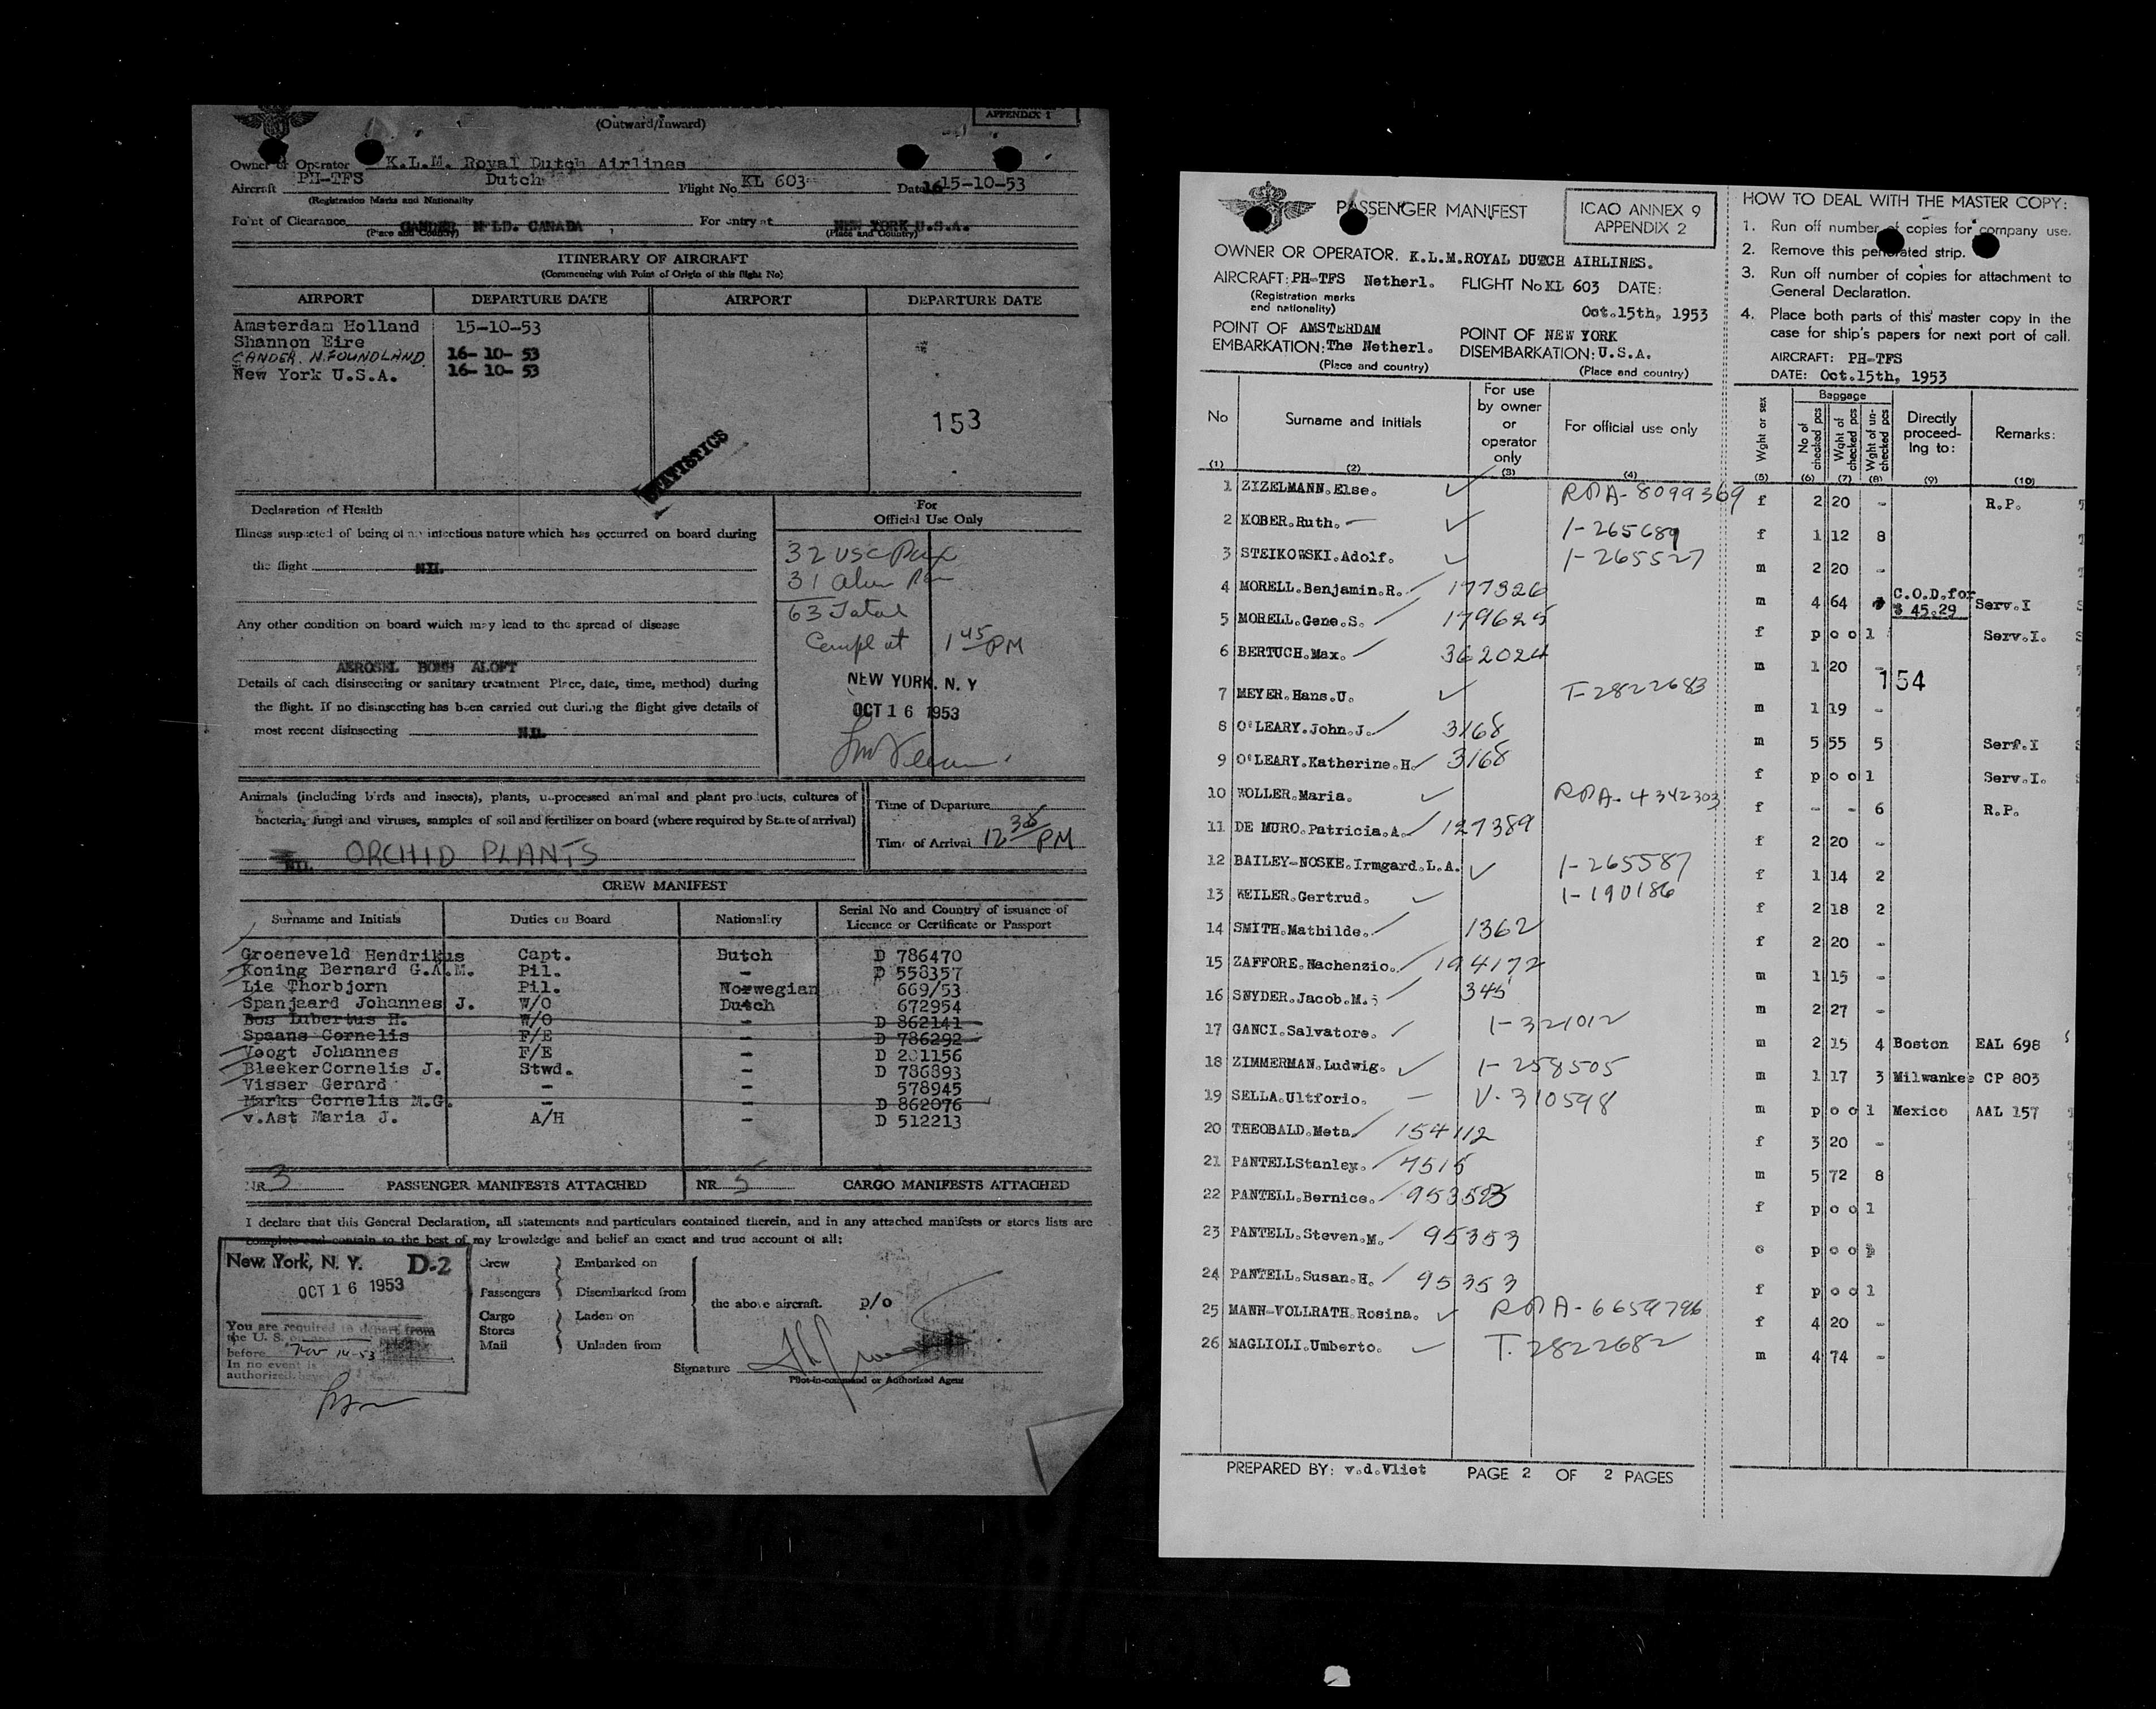 APPENDIX 1
(Outward/Inward)
Owner or Operator K.L.M. Royal Dutch Airlines
Aircraft PH-TFS Dutch Flight No. KL 603 Date 16 15-10-53
(Registration Marks and Nationality
Point of Clearance GANDER NFLD. CANADA For entry at NEW YORK U.S.A.
(Place and Country) (Place and Country)
ITINERARY OF AIRCRAFT
(Commencing with Point of Origin of this flight No)
AIRPORT DEPARTURE DATE AIRPORT DEPARTURE DATE
Amsterdam Holland 15-10-53
Shannon Eire
GANDER. N.FOUNDLAND. 16-10-53
New York U.S.A. 16-10-53
153
STATISTICS
Declaration of Health
For
Official Use Only
Illness suspected of being of an infectious nature which has occurred on board during
the flight NIL
32 USC Pax
31 alien Pax
63 Total
Any other condition on board which may lead to the spread of disease
Compl at 1 45 PM
AEROSEL BOMB ALOFT
Details of each disinsecting or sanitary treatment Place, date, time, method) during
the flight. If no disinsecting has been carried out during the flight give details of
most recent disinsecting NIL
NEW YORK, N. Y
OCT 16 1953
Animals (including birds and insects), plants, unprocessed animal and plant products, cultures of
bacteria, fungi and viruses, samples of soil and fertilizer on board (where required by State of arrival)
NIL ORCHID PLANTS
Time of Departure
Time of Arrival 12 38 PM
CREW MANIFEST
Surname and Initials Duties on Board Nationality Serial No and Country of issuance of
Licence or Certificate or Passport
Groeneveld Hendrikus Capt. Dutch D 786470
Koning Bernard G.A.M. Pil. - D 558357
Lie Thorbjorn Pil. Norwegian 669/53
Spanjaard Johannes J. W/O Dutch 672954
Bos Lubertus H. W/O - D 862141
Spaans Cornelis F/E - D 786292
Voogt Johannes F/E - D 201156
Bleeker Cornelis J. Stwd. - D 786893
Visser Gerard - - 578945
Marks Cornelis M.G. - - D 862076
v.Ast Maria J. A/H - D 512213
NR 3 PASSENGER MANIFESTS ATTACHED NR 5 CARGO MANIFESTS ATTACHED
I declare that this General Declaration, all statements and particulars contained therein, and in any attached manifests or stores lists are
complete and contain to the best of my knowledge and belief an exact and true account of all:
New York, N. Y. D-2
OCT 16 1953
You are required to depart from
the U. S. on or
before Nov 14-53
In no event is
authorized.
Crew Embarked on
Passengers Disembarked from
the above aircraft. p/o
Cargo Laden on
Stores
Mail Unladen from
Signature
Pilot-in-command or Authorized Agent
PASSENGER MANIFEST
ICAO ANNEX 9
APPENDIX 2
OWNER OR OPERATOR. K.L.M.ROYAL DUTCH AIRLINES.
AIRCRAFT: PH-TFS Netherl. FLIGHT No KL 603 DATE:
(Registration marks
and nationality)
Oct.15th, 1953
POINT OF AMSTERDAM POINT OF NEW YORK
EMBARKATION: The Netherl. DISEMBARKATION: U.S.A.
(Place and country) (Place and country)
HOW TO DEAL WITH THE MASTER COPY:
1. Run off number of copies for company use.
2. Remove this perforated strip.
3. Run off number of copies for attachment to
General Declaration.
4. Place both parts of this master copy in the
case for ship's papers for next port of call.
AIRCRAFT: PH-TFS
DATE: Oct.15th, 1953
No Surname and Initials For use by owner or operator only For official use only Wght or sex Baggage No of checked pcs Wght of checked pcs Wght of un-checked pcs Directly proceed-ing to: Remarks:
(1) (2) (3) (4) (5) (6) (7) (8) (9) (10)
1 ZIZELMANN.Else. RPA-8099369 f 2 20 - R.P.
2 KOBER.Ruth. 1-265689 f 1 12 8
3 STEIKOWSKI.Adolf. 1-265527 m 2 20 -
4 MORELL.Benjamin.R. 177326 m 4 64 C.O.D.for $ 45.29 Serv.I
5 MORELL.Gene.S. 179625 f pool Serv.I.
6 BERTUCH.Max. 362024 m 1 20 -
154
7 MEYER.Hans.U. T-2822683 m 1 19 -
8 O'LEARY.John.J. 3168 m 5 55 5 Serv.I
9 O'LEARY.Katherine.H. 3168 f pool Serv.I.
10 WOLLER.Maria. RPA-4342303 f - - 6 R.P.
11 DE MURO.Patricia.A. 127389 f 2 20 -
12 BAILEY-NOSKE.Irmgard.L.A. 1-265587 f 1 14 2
13 WEILER.Gertrud. 1-190186 f 2 18 2
14 SMITH.Mathilde. 1362 f 2 20 -
15 ZAFFORE.Nachenzio. 194172 m 1 15 -
16 SNYDER.Jacob.M. 345 m 2 27 -
17 GANCI.Salvatore. 1-321012 m 2 15 4 Boston EAL 698
18 ZIMMERMAN.Ludwig. 1-258505 m 1 17 3 Milwankee CP 803
19 SELLA.Ultforio. V-310598 m pool Mexico AAL 157
20 THEOBALD.Meta. 154112 f 3 20 -
21 PANTELLStanley. 7515 m 5 72 8
22 PANTELL.Bernice. f pool
23 PANTELL.Steven.M. 95353 poo
24 PANTELL.Susan.H. 95353 f pool
25 MANN-VOLLRATH.Rosina. RPA-6659796 f 4 20 -
26 MAGLIOLI.Umberto. T.2822682 m 4 74 -
PREPARED BY: v.d.Vliet PAGE 2 OF 2 PAGES